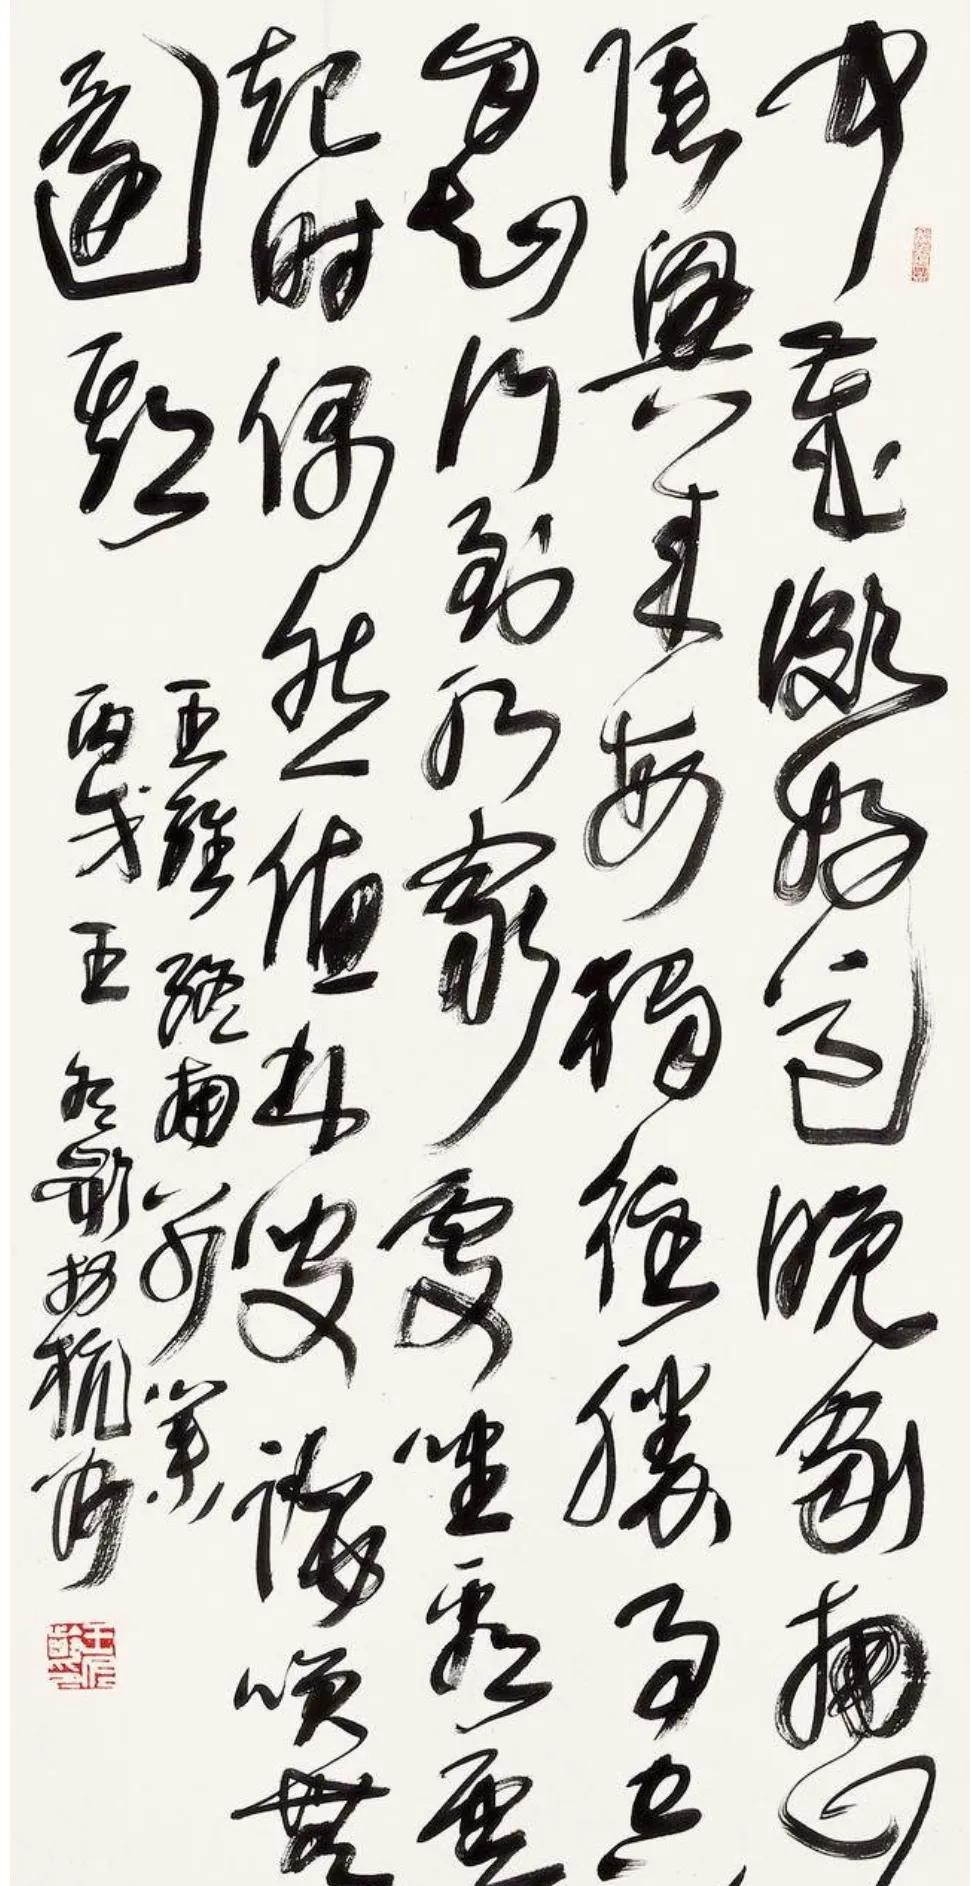 中歲頗好道晚家南山
陲興來每獨往勝事空
自知行到水窮處坐看雲
起時偶然值林叟談咲無
還期
王維終南別業
丙戌王冬齡於杭州